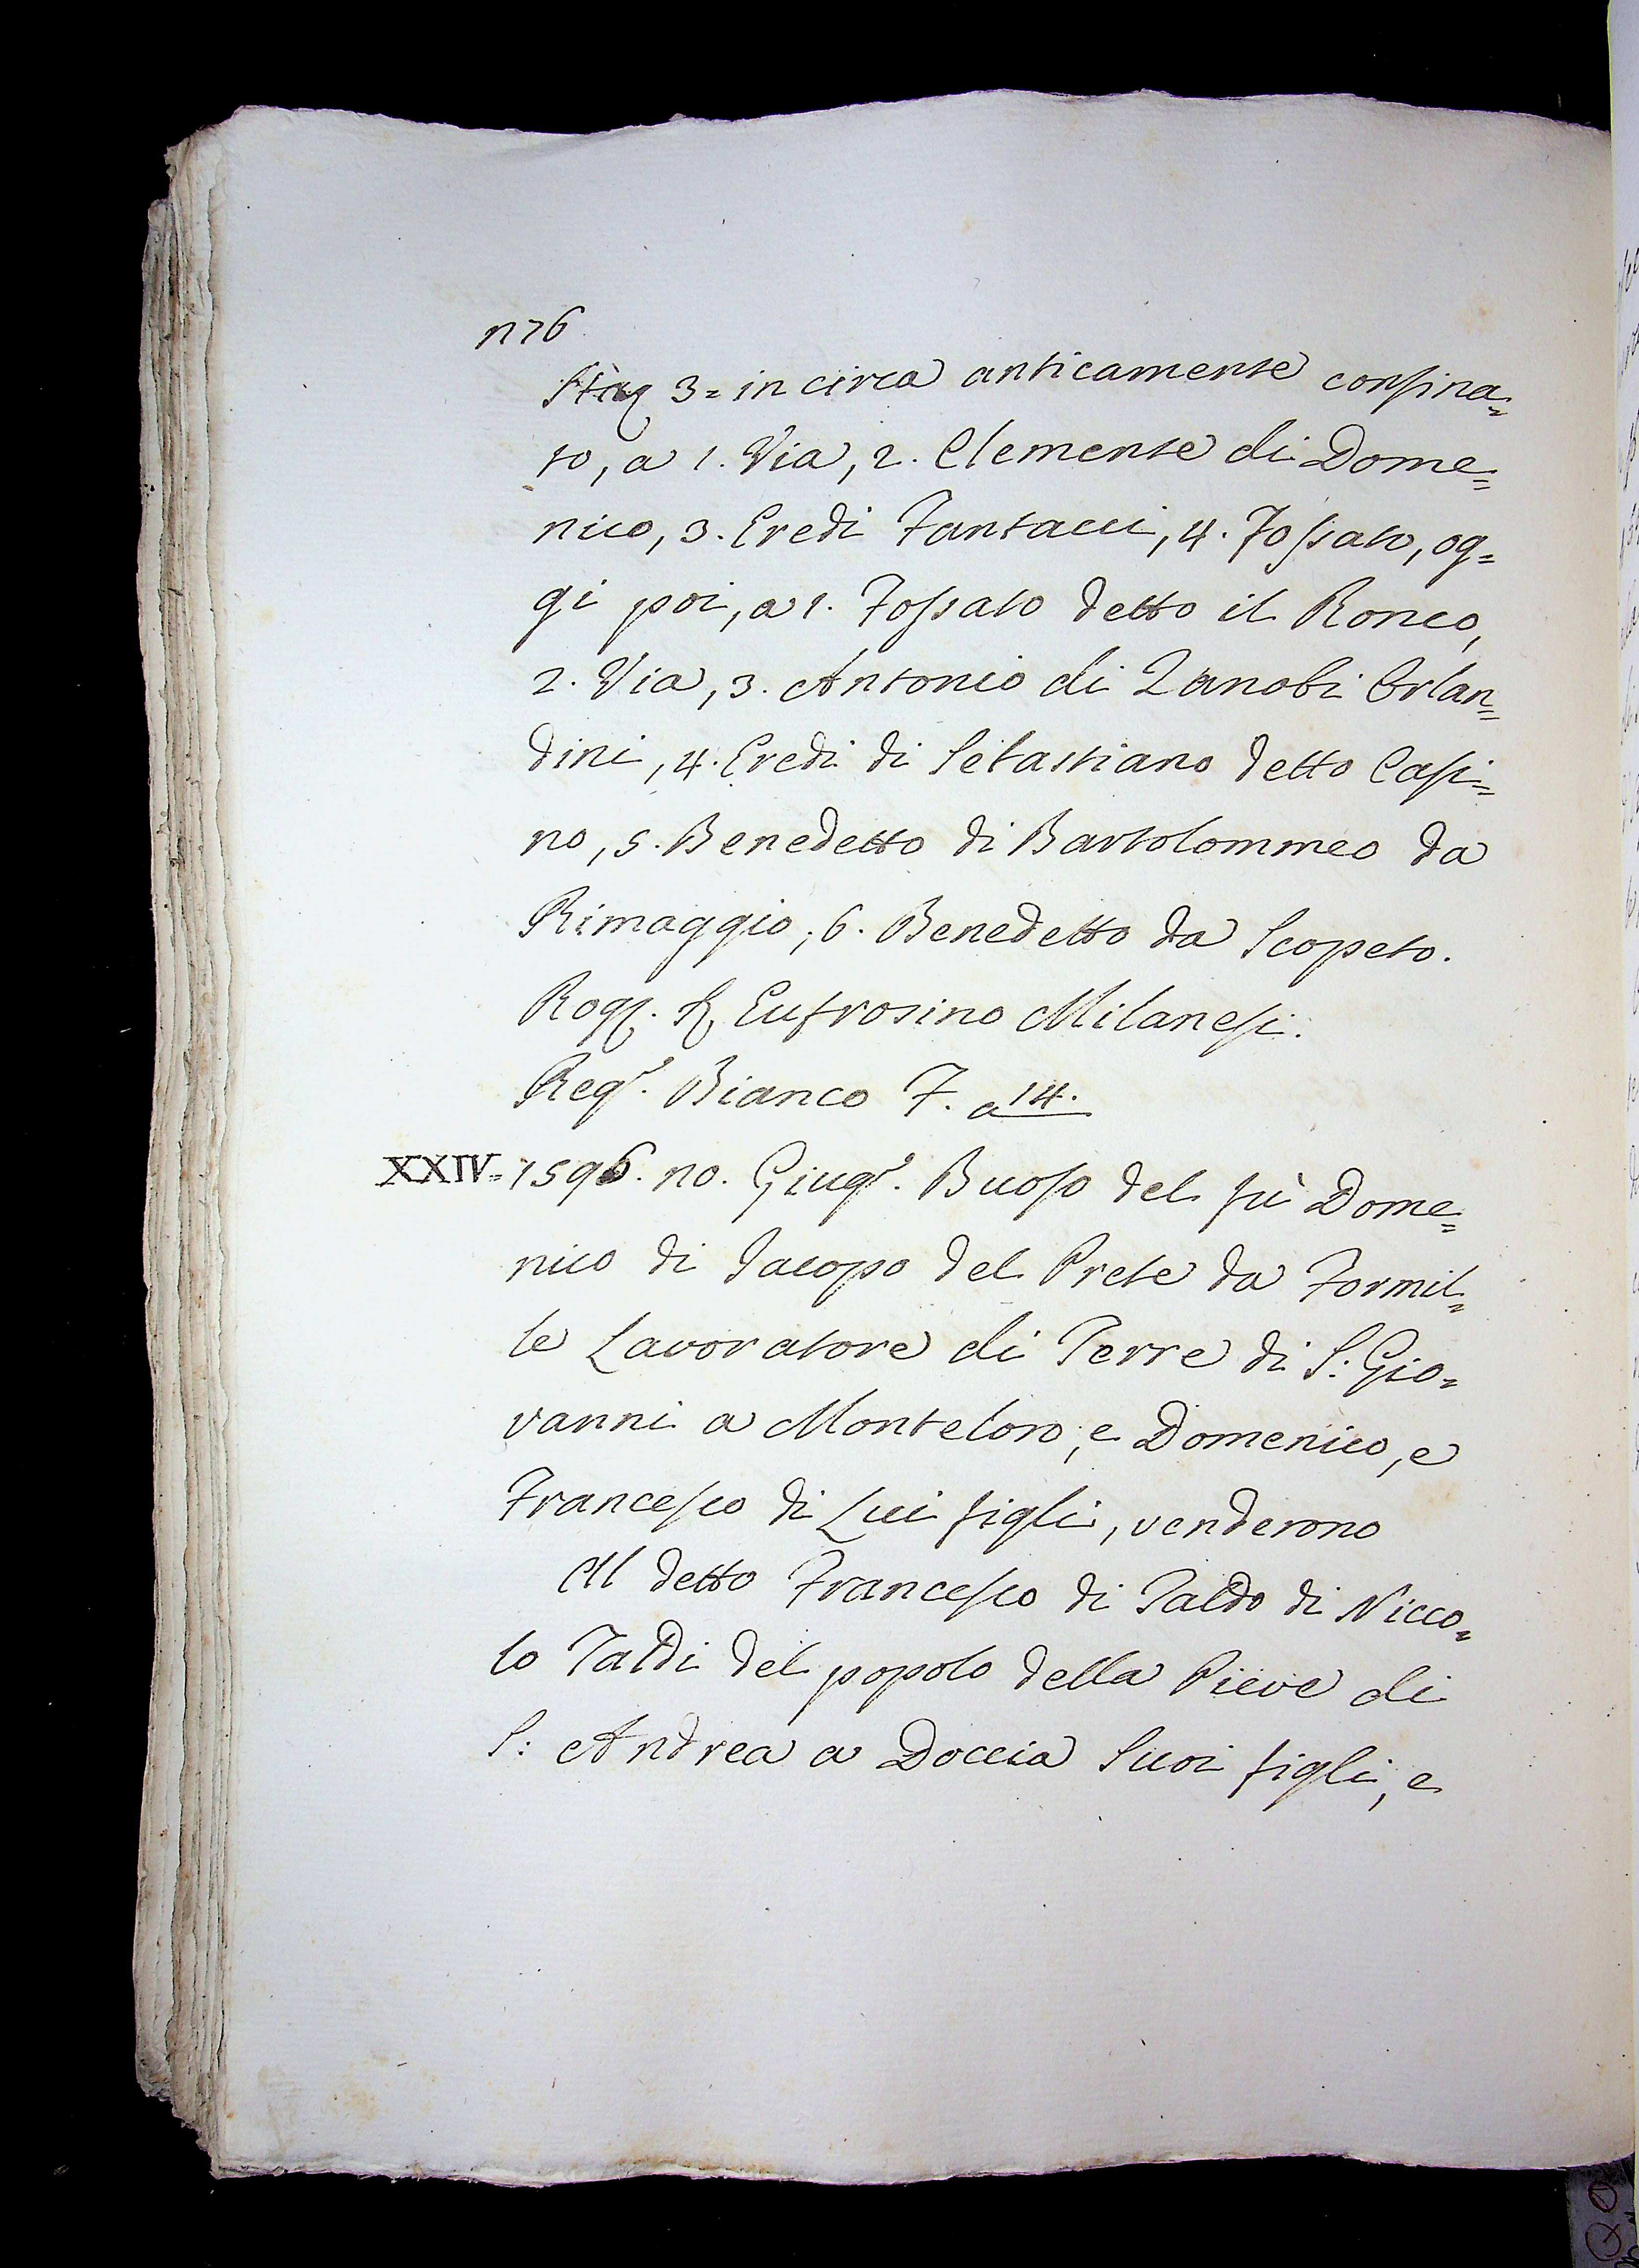 n76
Staq 3= in circa anticamente confina=
to, a 1. Via, 2. Clemente di Dome=
nico, 3. Eredi Fantacci, 4. Fossato, og=
gi poi, a 1. Fossato detto il Ronco,
2. Via, 3. Antonio di Zanobi Orlan=
dini, 4. Eredi di Sebastiano detto Casi=
no, 5. Benedetto di Bartolommeo da
Rimaggio, 6. Benedetto da Scopeto.
Rog. Eufrosino Milanesi.
Regº. Bianco F. a 14.
XXIV= 1596. 10. Giugº. Buoso del fù Dome=
nico di Iacopo del Prete da Formil=
le Lavoratore di Terre di S: Gio=
vanni a Monteloro, e Domenico, e
Francesco di Lui figli, venderono
Al detto Francesco di Taldo di Nicco=
lo Taldi del popolo della Pieve di
S: Andrea a Doccia Suoi figli, e